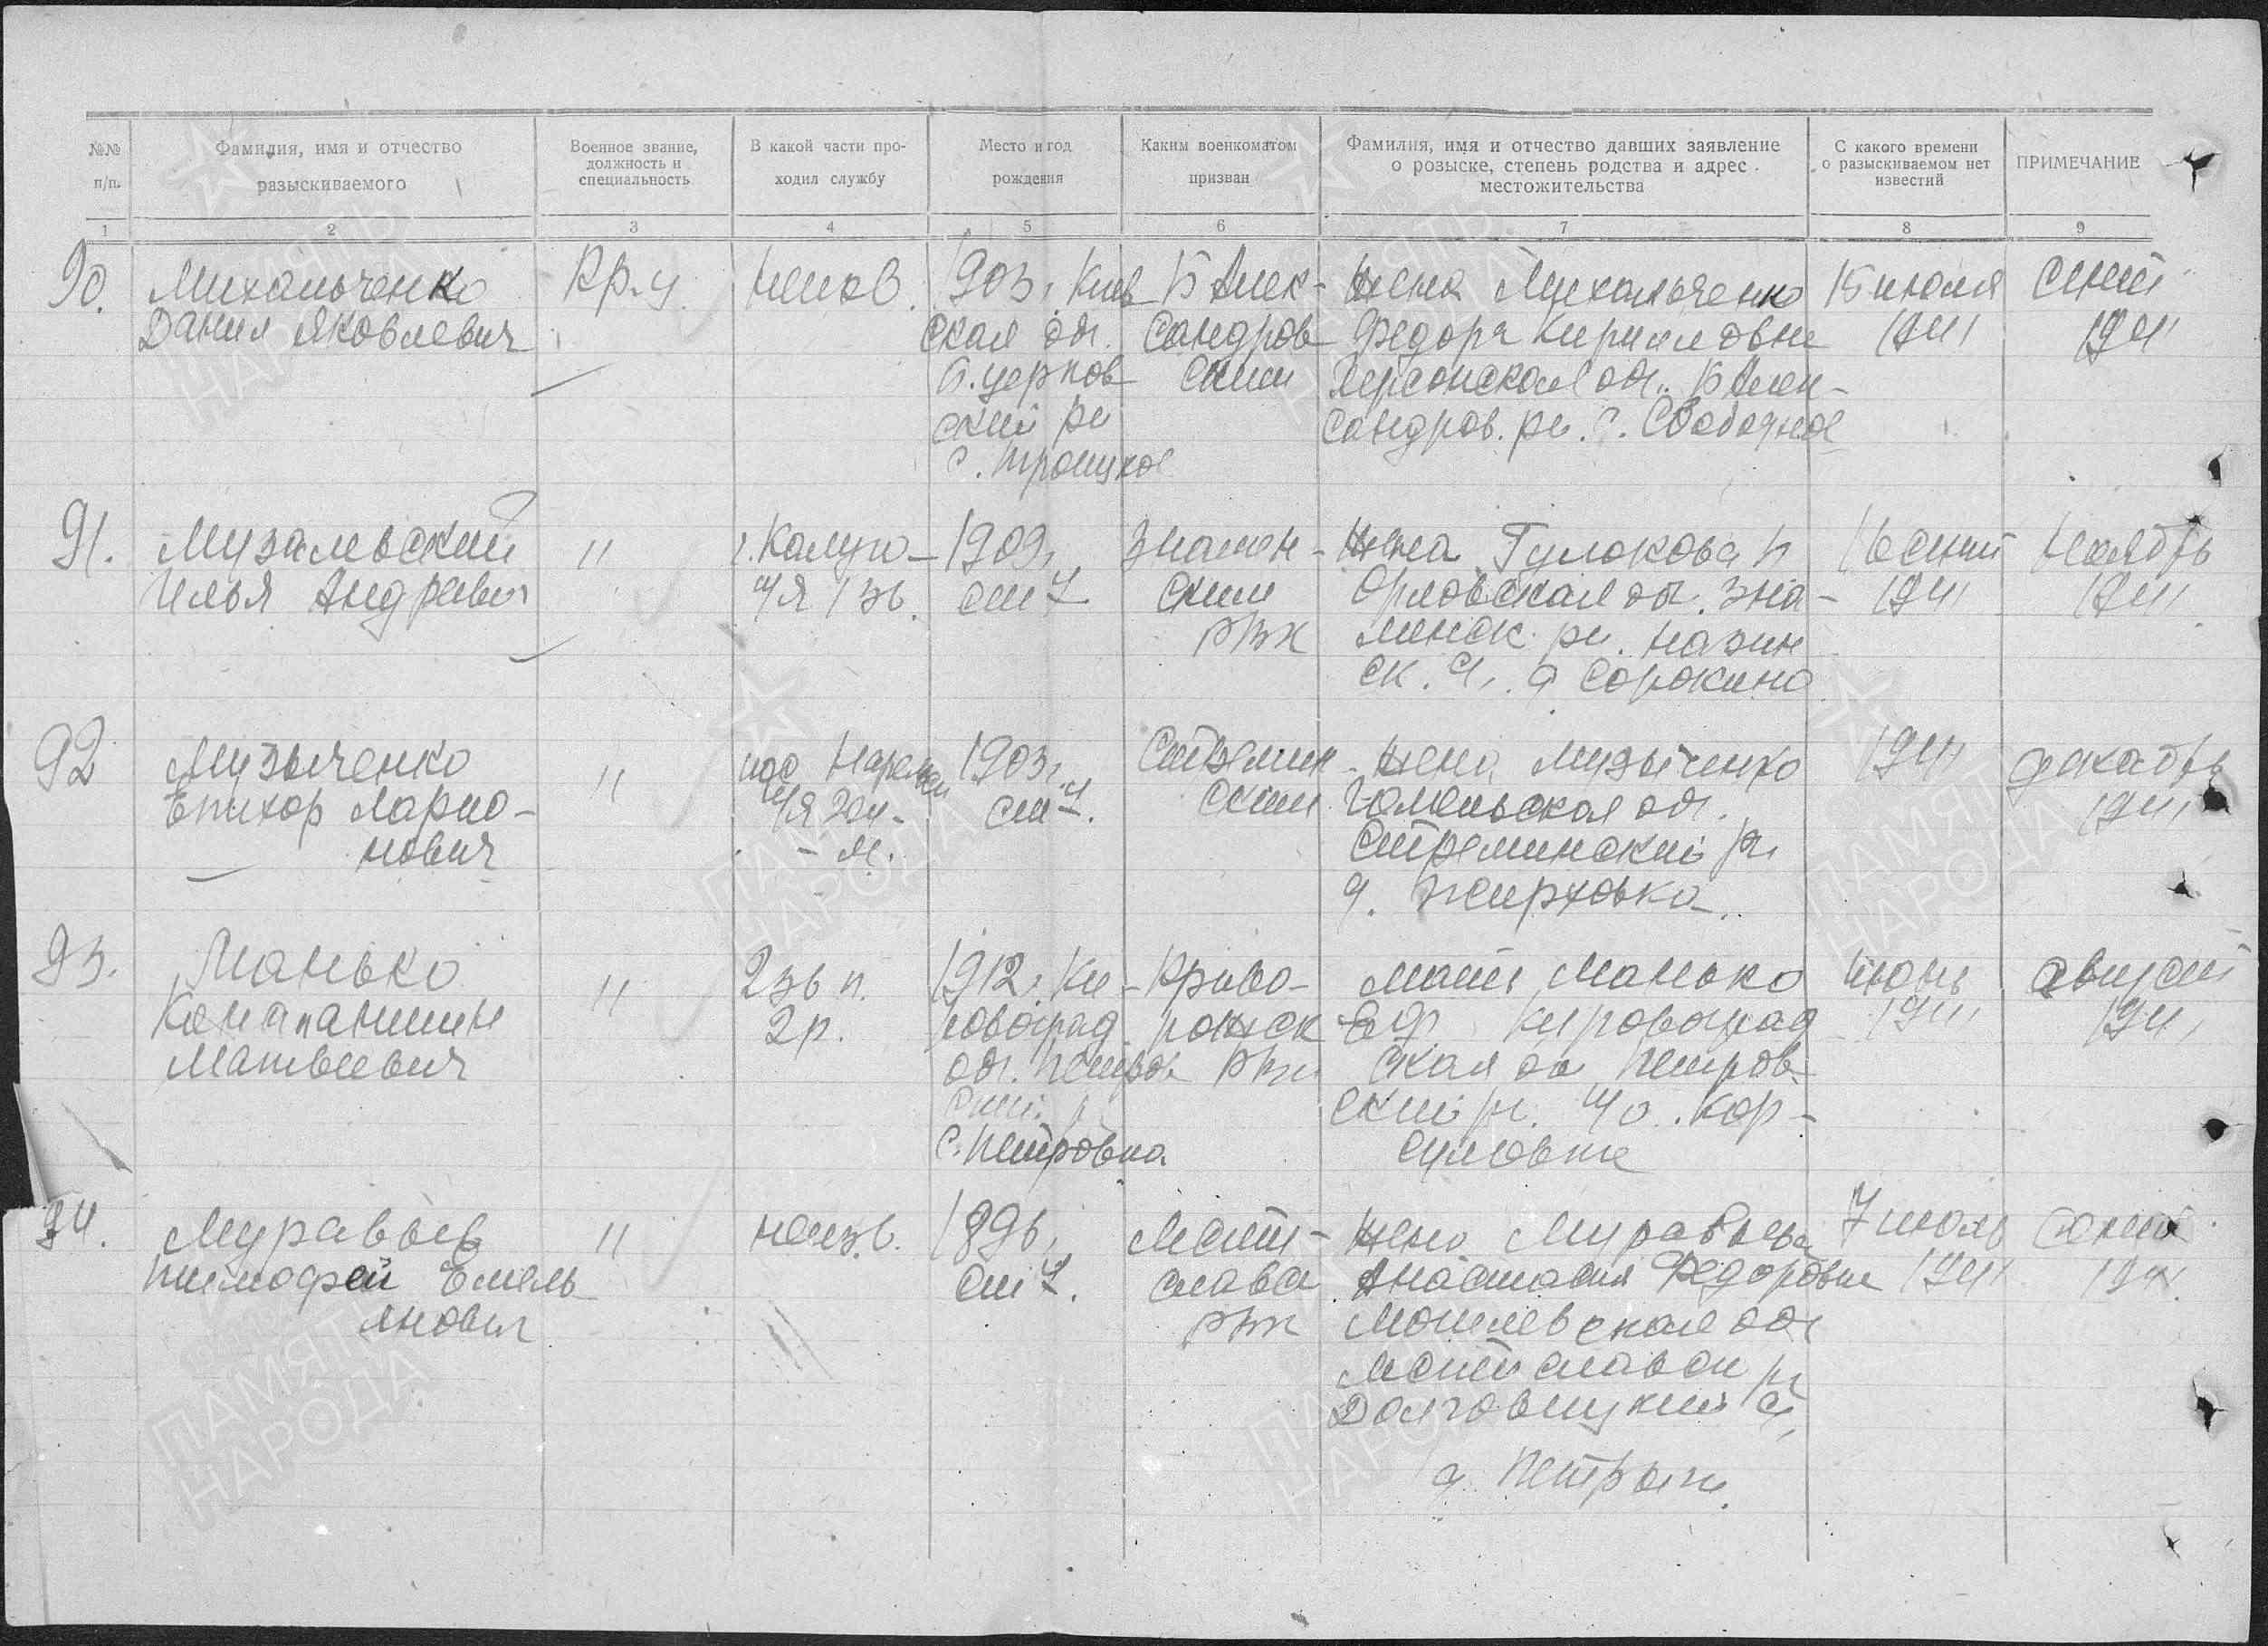 №№ п/п.
Фамилия, имя и отчество разыскиваемого
Военное звание, должность и специальность
В какой части проходил службу
Место и год рождения
Каким военкоматом призван
Фамилия, имя и отчество давших заявление о розыске, степень родства и адрес местожительства
С какого времени о разыскиваемом нет известий
ПРИМЕЧАНИЕ
1 2 3 4 5 6 7 8 9
90.
Михальченко
Данил Яковлевич
Кр-ц
1903, Киев
ская об.
Б.церков
ский рн
с. Троицкое
Б Алек-
сандров
ским
жена Михальченко
Федора Кирилловне
Херсонская об. Б Алек-
сандров. рн. с. Свободное
15 июля
1941
сент
1941
91.
Музалевский
Илья Андреевич
"
г. Калуга
п/я
1909,
см 7
Знамен-
ским
РВК
жена Гулокова
Орловская об. Зна-
менск. рн.
д Сорокино
16 сент
1941
Ноябрь
1941
92
Музыченко
Епихор Ларио-
нович
"
п/я
1903,
см 7.
Стрешин
ским
жена Музыченко
Гомельская об.
Стрешинский рн
д. Жирховка
1941
декабрь
1941
93.
Манько
Констаншин
Матвеевич
"
2 зв п.
2р.
1912, Ки-
ровоград
об. Петров
ский р
с. Петровка
Криво-
рожск
РВК
мать Манько
Кировоград
ская об Петров
ский рн. п/о. Кор-
суновке
июнь
1941
август
1941
94.
Муравьев
Тимофей Емель
янович
"
неизв.
1896,
см 7.
Мсти-
славск
РВК
жена Муравьева
Анастасия Федоровне
Могилевская обл
Мстиславск рн
Долговицкий с,
д. Петрыки
7 июль
1941
1941
ПАМЯТЬ
НАРОДА